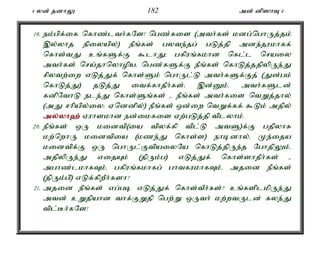 4 லன் தனாலூ 182 அன் னிஸாவு 4
19. நம்பிக்கை கொண்டவர்களே! பெண்களை (அவர்கள் மனப்பொருத்தம்
இல்லாத நிலையில்) நீங்கள் பலவந்தப் படுத்தி அனந்தரமாகக்
கொள்வது உங்களுக்கு கூடாது; பகிரங்கமான கெட்ட செயலை
அவர்கள் செய்தாலொழிய, பெண்களுக்கு நீங்கள் கொடுத்ததிலிருந்து
சிலவற்றை எடுத்துக் கொள்ளும் பொருட்டு அவர்களுக்குத் (துன்பம்
கொடுத்து) தடுத்து வைக்காதீர்கள்; இன்னும், அவர்களுடன்
கனிவோடு நடந்து கொள்ளுங்கள் - நீங்கள் அவர்களை வெறுத்தால்
(அது சரியில்லை; ஏனெனில்) நீங்கள் ஒன்றை வெறுக்கக் கூடும் அதில்
அல்லாஹ் ஏராளமான நன்மைகளை ஏற்படுத்தி விடலாம்.
20. நீங்கள் ஒரு மனைவி(யை விலக்கி விட்டு அவளு)க்கு பதிலாக
மற்றொரு மனைவியை (மணந்து கொள்ள) நாடினால், முந்தைய
மனைவிக்கு ஒரு பொருட்குவியலையே கொடுத்திருந்த போதிலும்,
அதிலிருந்து எதையும் (திரும்ப) எடுத்துக் கொள்ளாதீர்கள் -
அபாண்டமாகவும், பகிரங்கமாகப் பாவகரமாகவும், அதனை நீங்கள்
(திரும்பி) எடுக்கிறீர்களா?
21. அதனை நீங்கள் எப்படி எடுத்துக் கொள்வீர்கள்? உங்களிடமிருந்து
அவள் உறுதியான வாக்குறுதி பெற்று ஒருவர் மற்றவருடன் கலந்து
விட்டீர்களே!